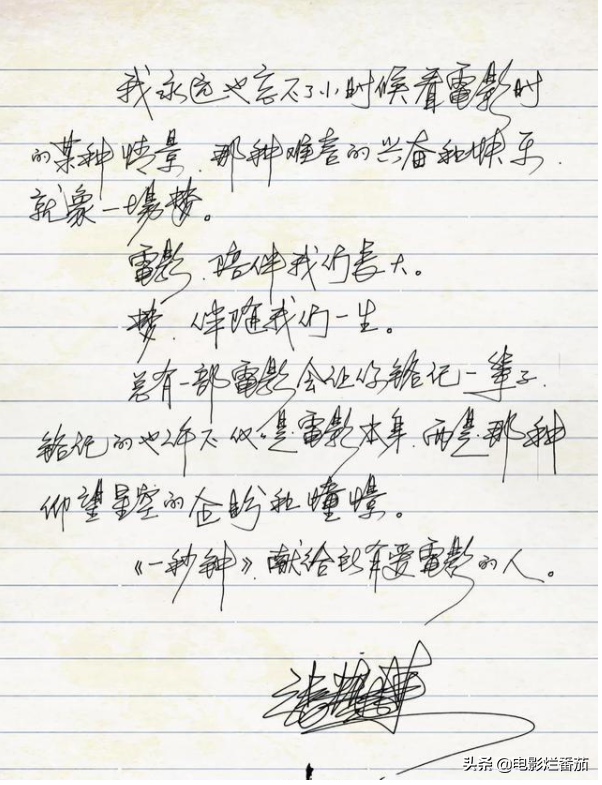 我永远也忘不了小时候看電影时
的某种情景.那种难言的兴奋和快乐.
就象一場梦。
電影.陪伴我们長大。
梦.伴随我们一生。
总有一部電影会让你铭记一辈子.
铭记的也许不仅是電影本身.而是那种
仰望星空的企盼和憧憬。
《一秒钟》.献给所有爱電影的人。
头条 @电影烂番茄